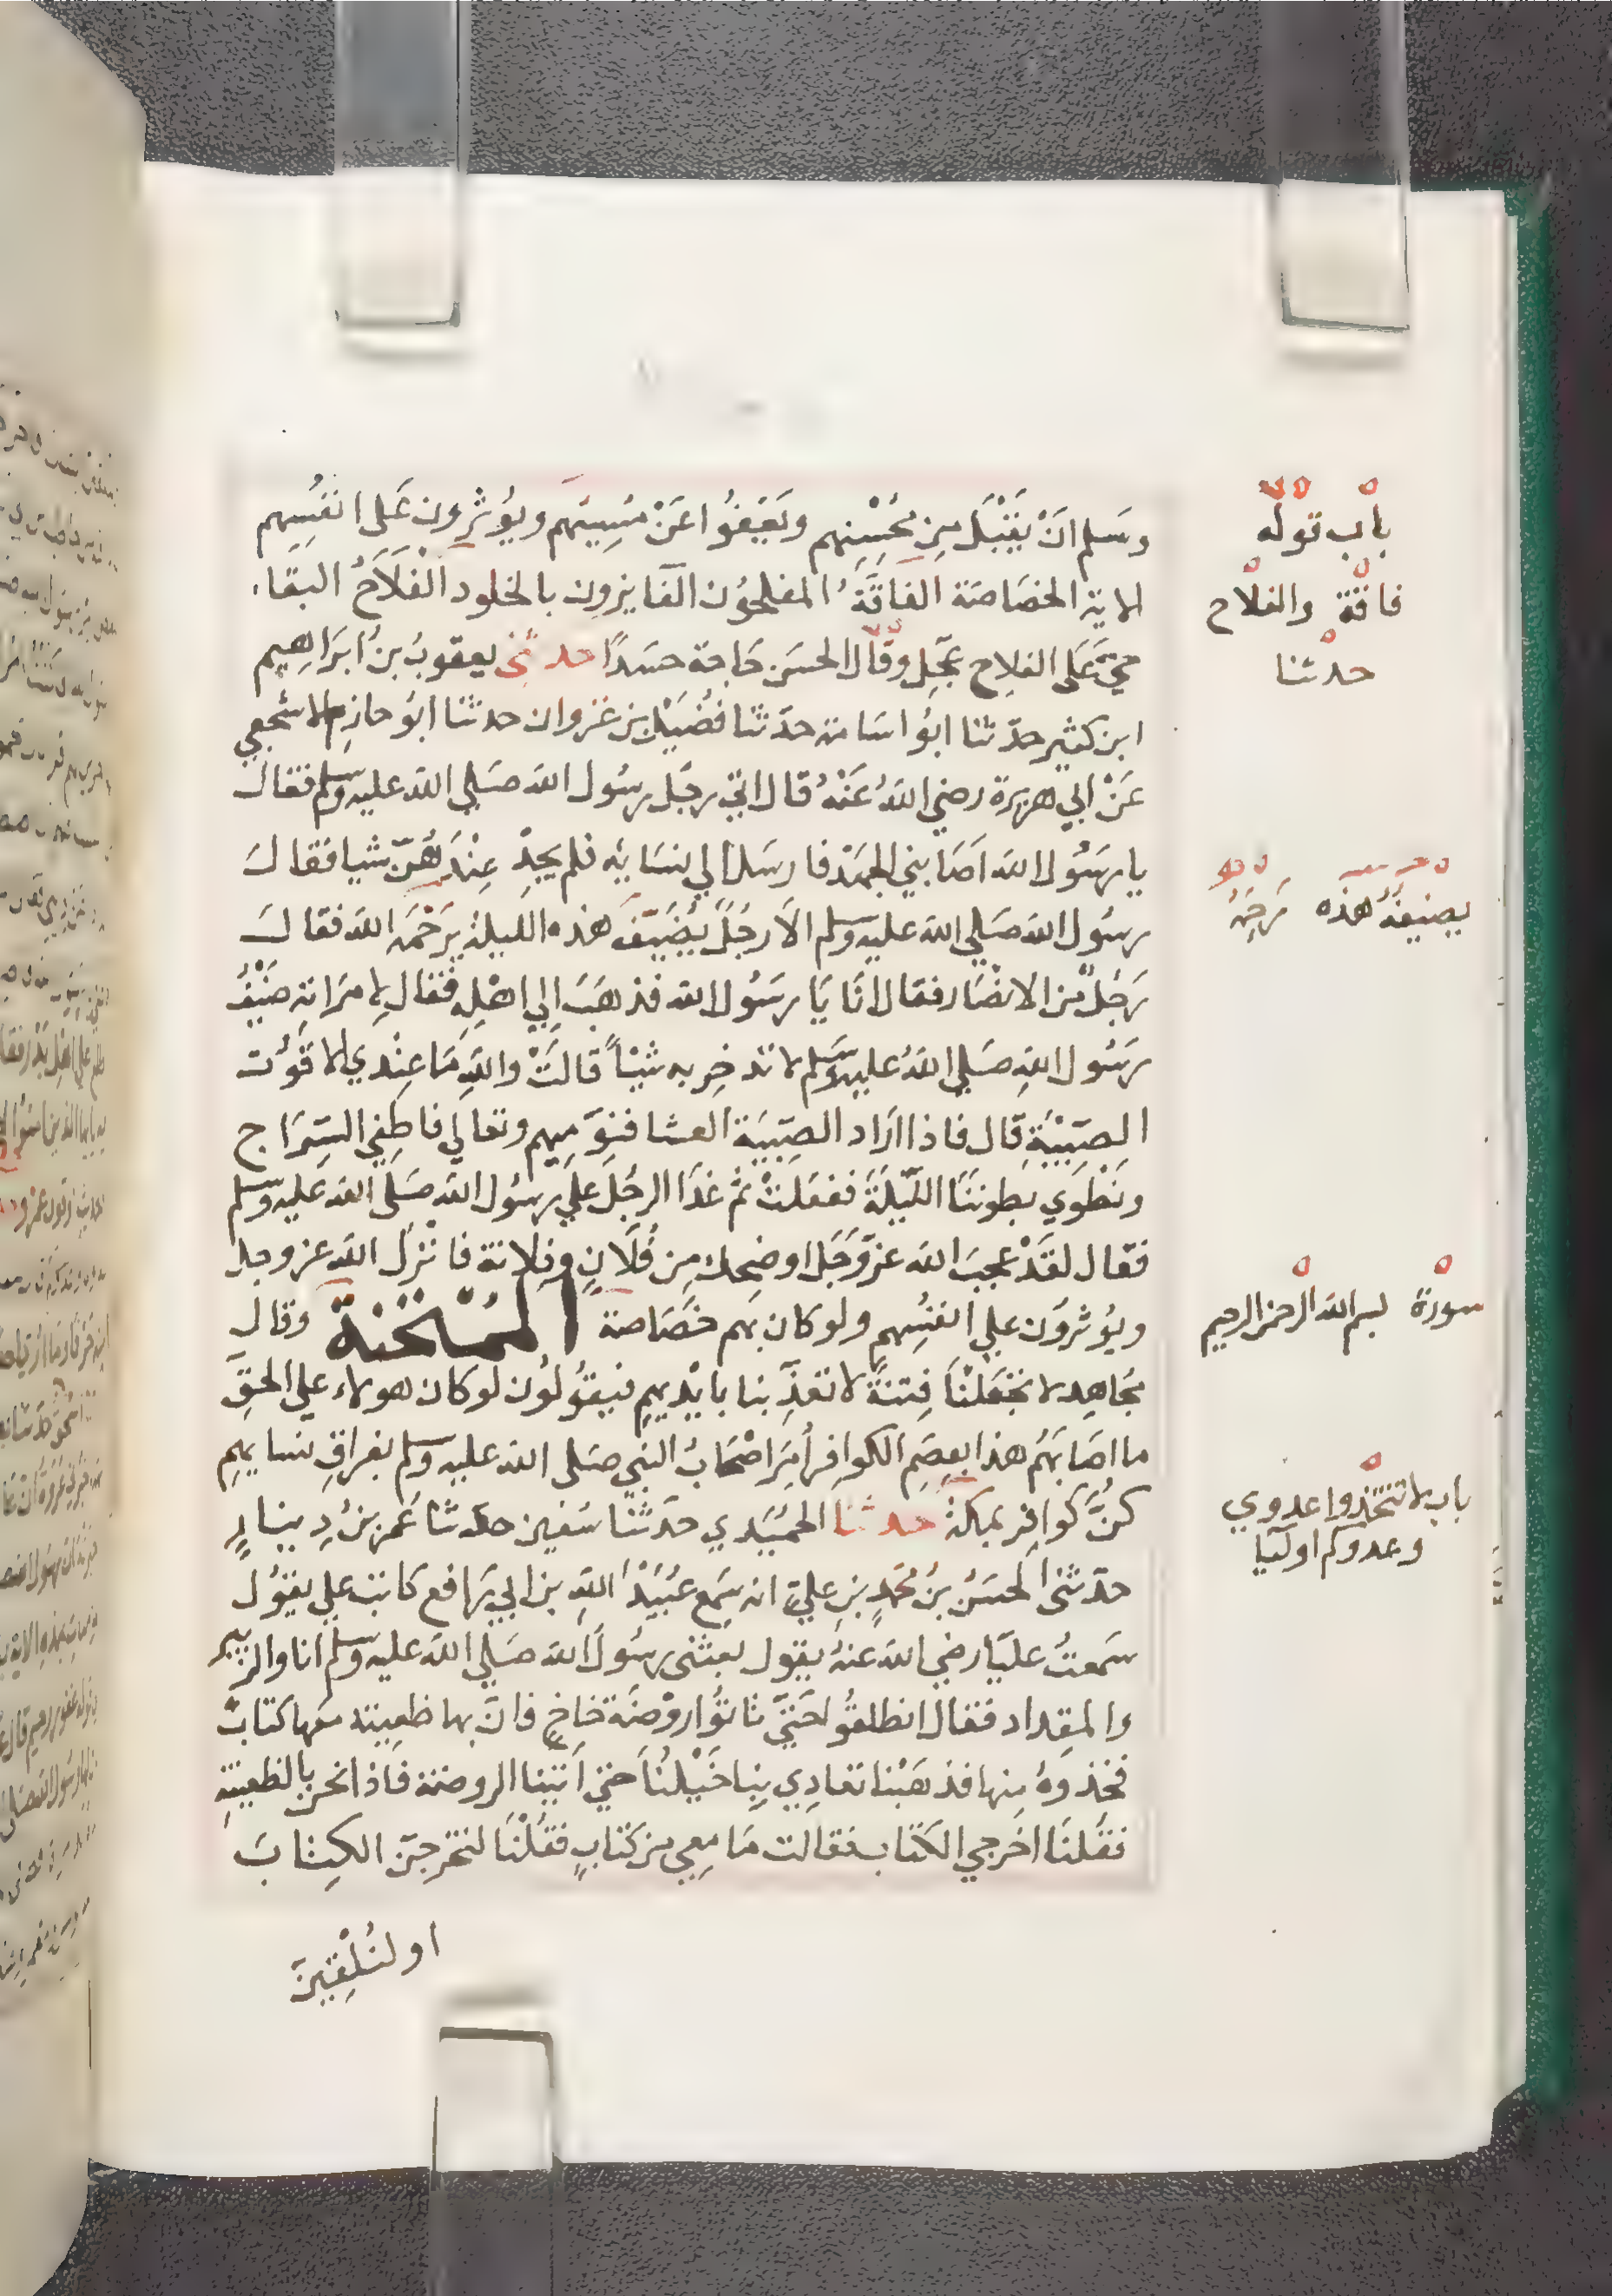 وسلم انْ يَقْبَلَ مِن مُحْسِنِهم ويَعْفُوا عَنْ مُسِيئهم ويُؤثِرون عَلى انفُسِهم
الاية الخصَاصَة الفاقَةُ المفلحُون الفَايزون بالخلود الْفَلَاحُ البقا
حيَّ عَلَى الفلاح عَجِل وقال الحسَن حَاجة حسَدًا حدثنى يعقوبُ بن ابرَاهِيم
ابن كثير حدّثنا ابُو اسَامة حدّثنا فُضَيْل بن غزوان حدثنا ابُو حازم الاشجعي
عَنْ ابي هريرة رضي اللهُ عَنْهُ قال اتى رجَل رسُول الله صَلي الله عليه وسلم فقال
يا رسَوُل الله اصَابني الجهَدْ فارسَل الي نسَايه فلم يجدْ عِنْدَهُنّ شيا فقالَ
رسُول الله صَلي الله عليه وسلم الَا رجُلٌ يُضَيّفَ هذه الليلة يَرْحَمه الله فقالَ
رَجُلٌ من الانصَار فقال انَا يَا رسَوُل الله فذهَبَ الي اهْلِه فقال لِامرَاته ضَيْفُ
رسَوُل اللهِ صَلي اللهُ عليه وسلم لا تدخِريه شَيْئاً قالَتْ واللهِ مَا عِنْدي الا قُوْت
الصِبْيَةِ قال فاذا ارَاد الصِبْيَة العشا فنوّمِيهم وتعالي فاطفِي السِرَاج
ونَطْوِي بطونَنا اللّيْلَةَ ففعَلتْ ثم غدَا الرجُل علي رسُول الله صَلى الله عليه وسلم
فقال لقدْ عجبَ الله عزّوَجَل او ضحِك مِن فُلَانٍ وفلانة فانْزلَ الله عز وجل
ويُؤثرون علي انفسُهِم ولو كان بهم خصَاصة المُمْتَحَنةُ وقال
مجَاهِد لا تجْعَلْنَا فِتنةً لا تعذّبنا بايْديهِم فيقُولُون لو كان هولاء علي الحقّ
ما اصَابهَمُ هذا بعِصَم الكوافِر اُمِرَ اصْحَابُ النبي صَلى الله عليه وسلم بفراقِ نسايهِم
كنَّ كوافِر بمكةَ حدثنا الحمَيْدي حدّثنا سُفين حدّثنا عَمرو بنُ دِينارٍ
حدّثنى الحسَنُ بنُ محَمّدٍ بنِ عليّ انه سَمِع عُبَيْدَ اللهِ بن ابي رَافع كاتب علي يقُول
سَمعتُ عليّا رضي الله عنهُ يقول بعثنى رسُولُ الله صَلي الله عليه وسلم انا والزبير
والمقداد فقال انطلقُوا حَتيَّ تاتوُا روْضَة خاخٍ فانّ بها ظعِينة معَها كتابٌ
فخذوهُ مِنها فذهَبْنا تعادِي بِنا خَيْلنُا حَتي اتينا الروضة فاذا نحن بالظعينةِ
فقلنَا اخرجي الكتاب فقالت مَا معِي من كتابٍ فقُلْنَا لتخرجنّ الكتِابَ
او لنُلْقِيَنّ
باب قوله
فاقة والفلاح
حدثنا
يضيفهُ هذه رَحِمَهُ
سورة بسم الله الرحمن الرحيم
باب لا تتخذوا عدوي
وعدوكم اوليا